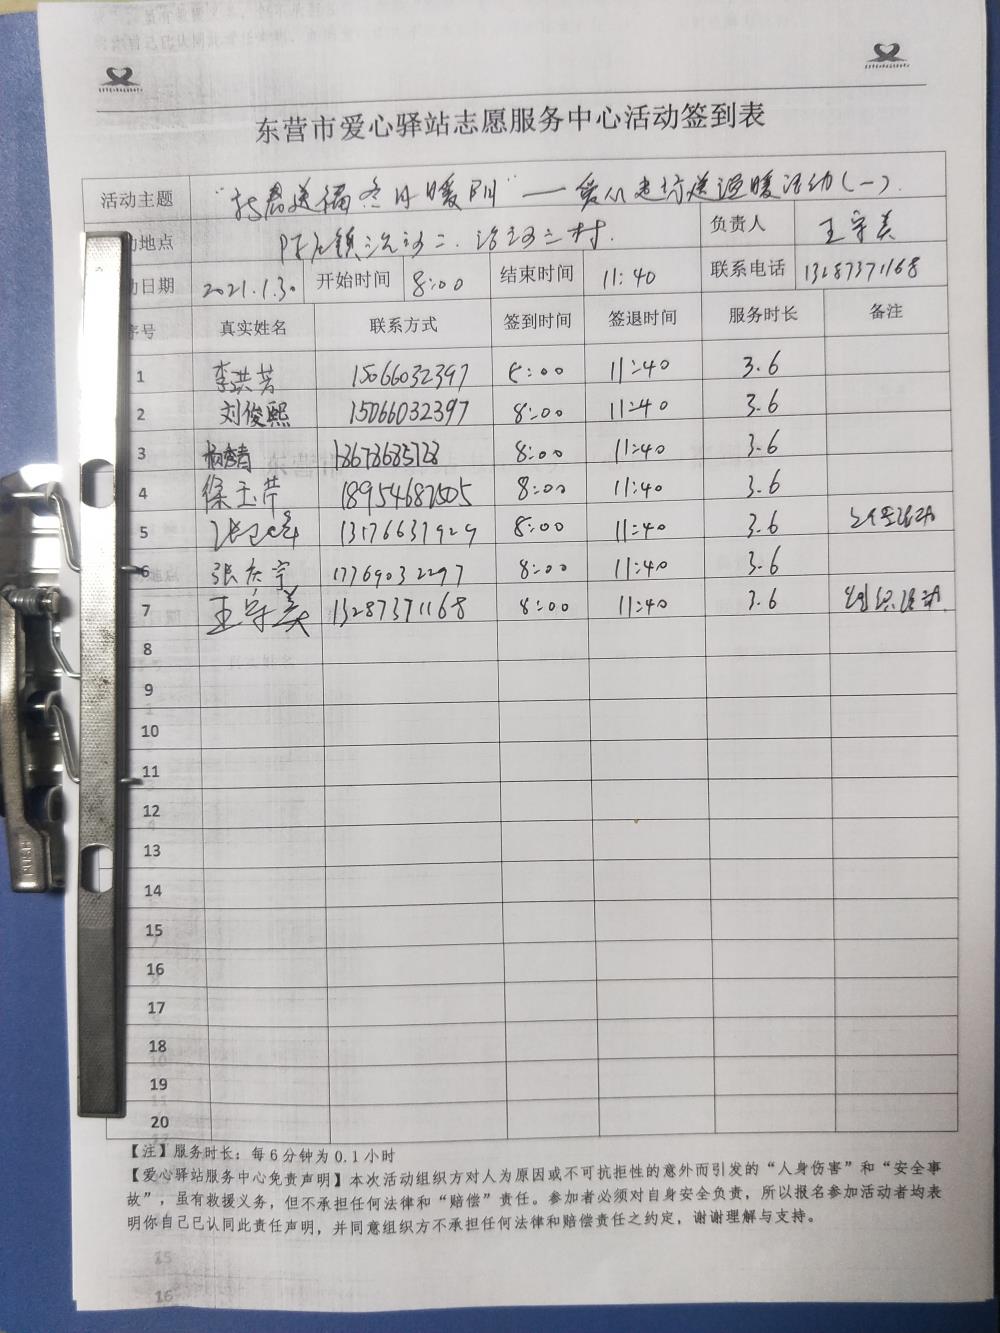 东营市爱心驿站志愿服务中心活动签到表
活动主题 送福冬日暖阳"——爱心走访送温暖活动(一).
动地点 负责人 王守美
动日期 2021.1.30 开始时间 8:00 结束时间 11:40 联系电话 13287371168
序号 真实姓名 联系方式 签到时间 签退时间 服务时长 备注
1 李洪芳 15066032397 8:00 11:40 3.6
2 刘俊熙 15066032397 8:00 11:40 3.6
3 8:00 11:40 3.6
4 徐玉芹 8:00 11:40 3.6
5 13176631929 8:00 11:40 3.6
6 张庆宇 17769032297 8:00 11:40 3.6
7 王守美 13287371168 8:00 11:40 3.6 组织活动
8
9
10
11
12
13
14
15
16
17
18
19
20
【注】服务时长：每6分钟为0.1小时
【爱心驿站服务中心免责声明】本次活动组织方对人为原因或不可抗拒性的意外而引发的“人身伤害”和“安全事
故”，虽有救援义务，但不承担任何法律和“赔偿”责任。参加者必须对自身安全负责，所以报名参加活动者均表
明你自己已认同此责任声明，并同意组织方不承担任何法律和赔偿责任之约定，谢谢理解与支持。